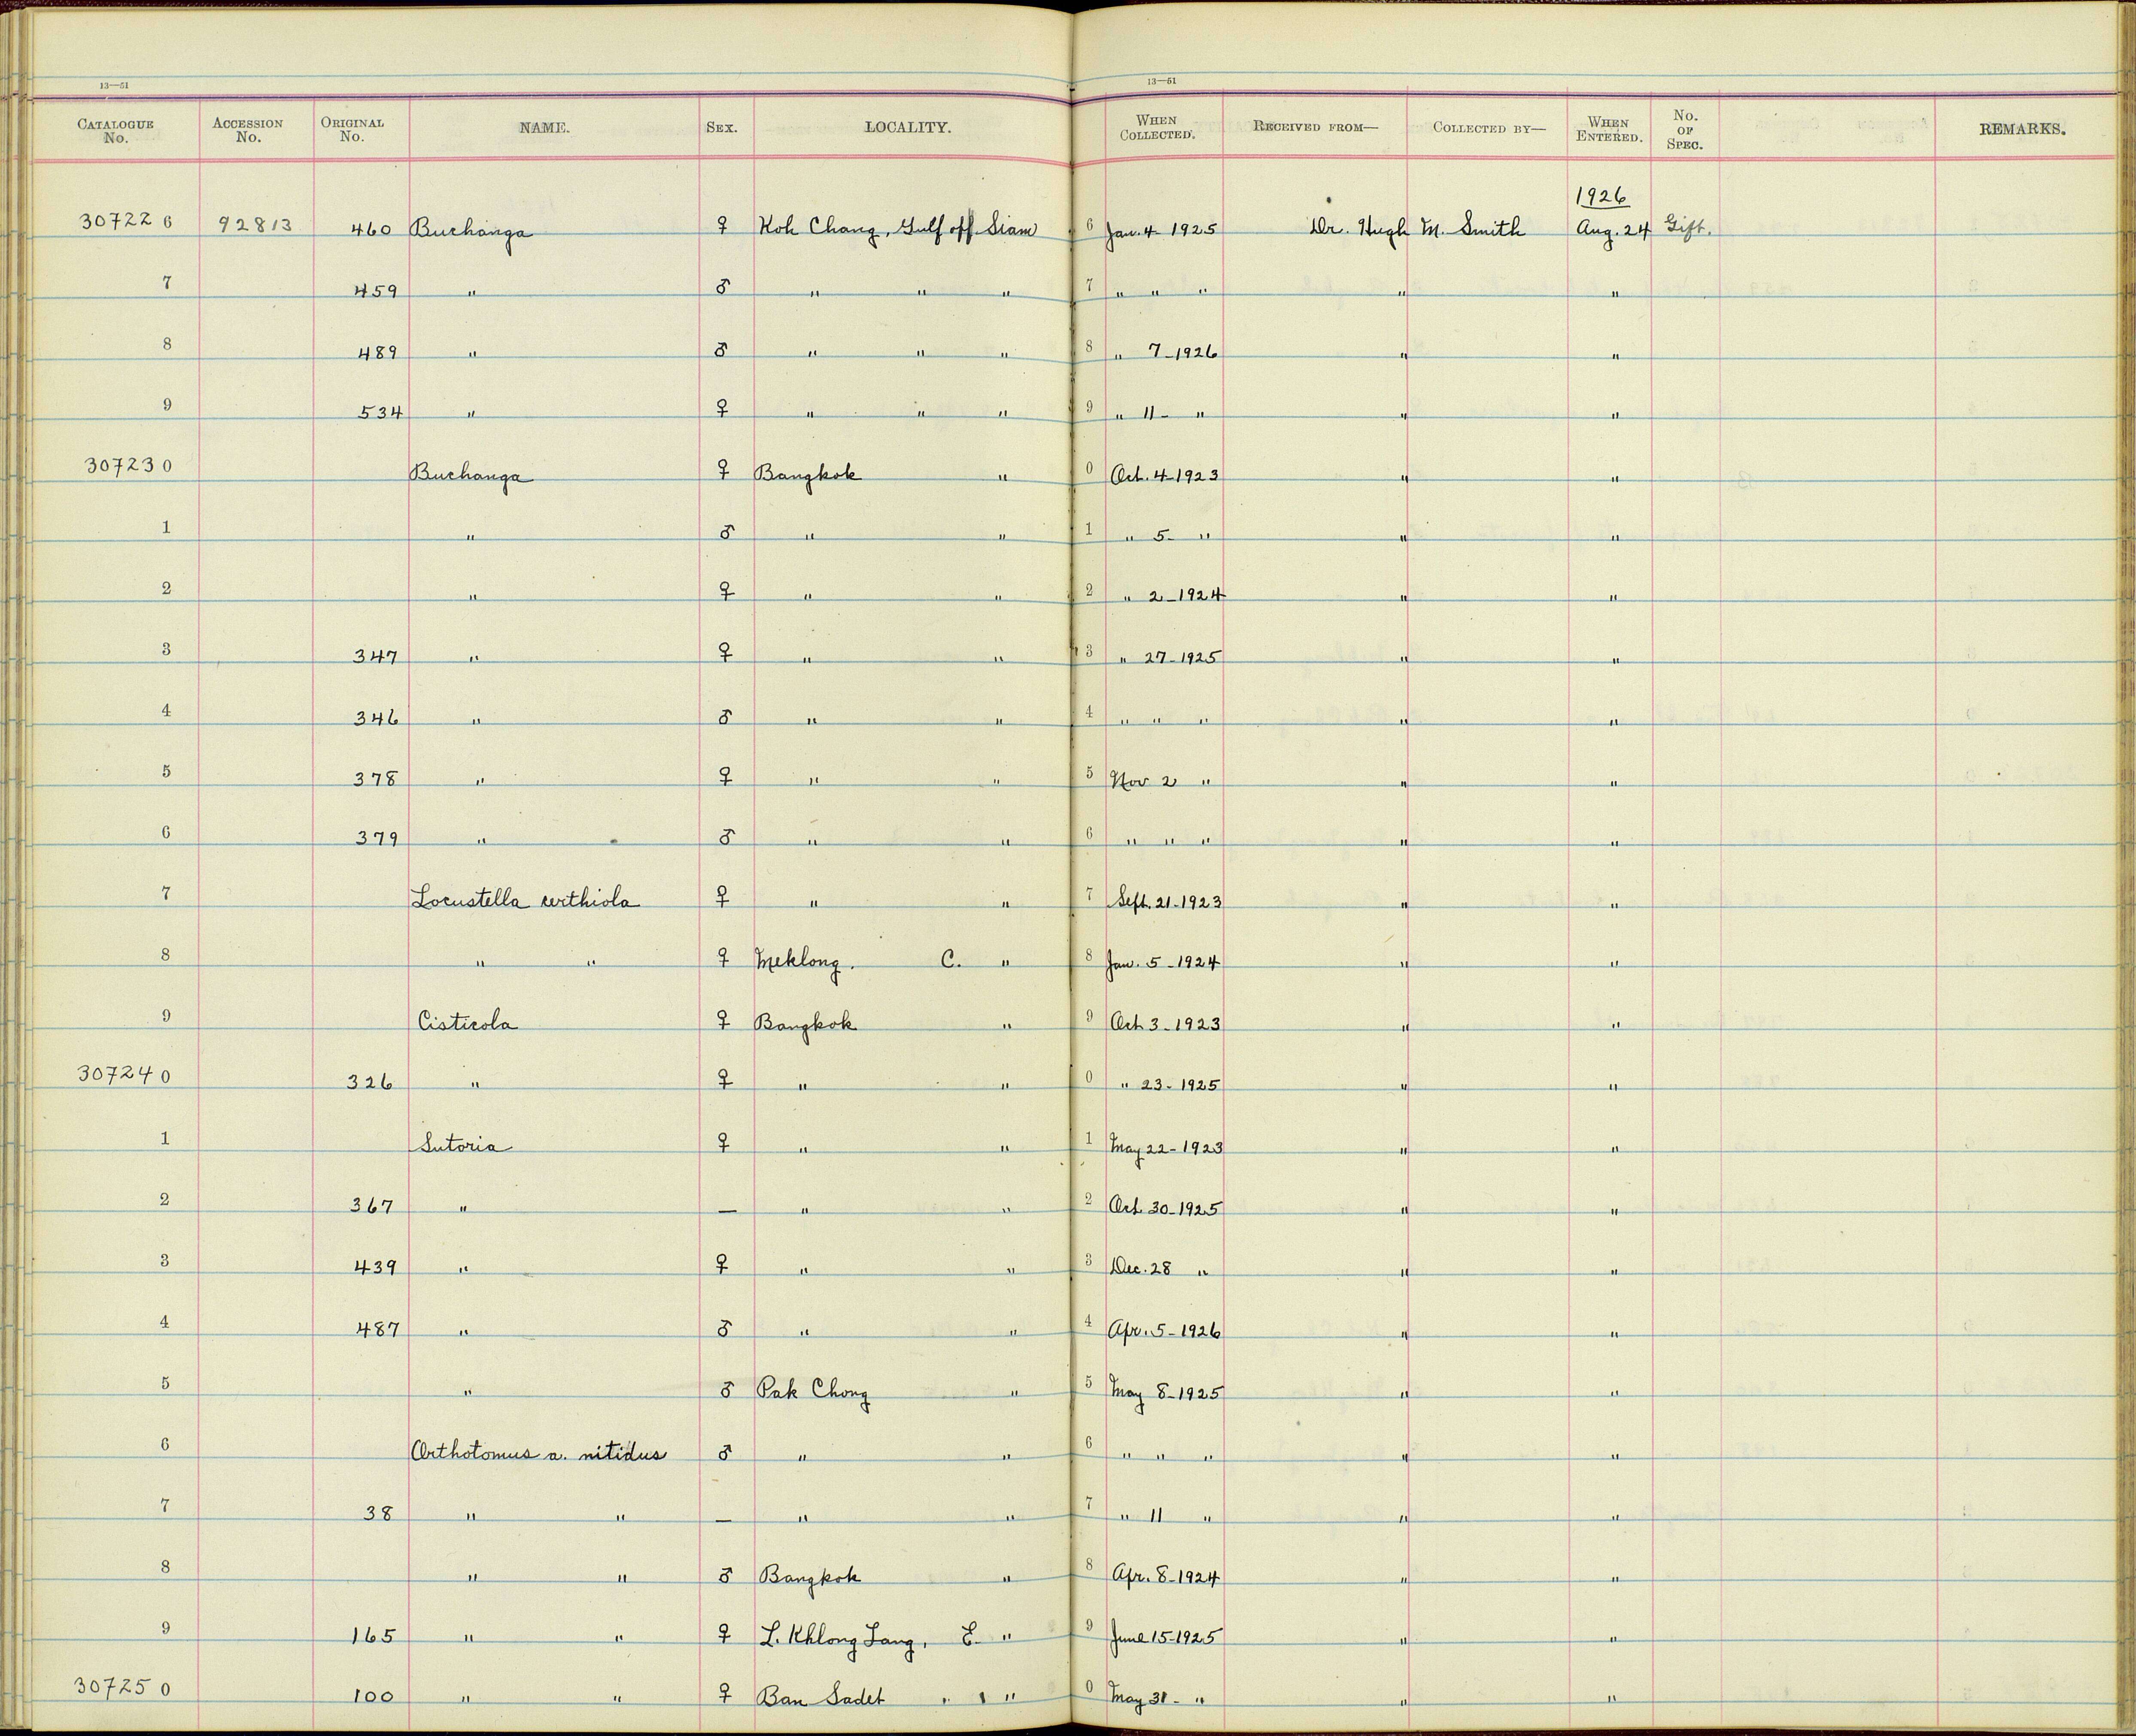 13—51 13—51
CATALOGUE No. ACCESSION No. ORIGINAL No. NAME. SEX. LOCALITY. WHEN COLLECTED. RECEIVED FROM— COLLECTED BY— WHEN ENTERED. No. OF SPEC. REMARKS.
1926
307226 92813 460 Buchanga ♀ Koh Chang, Gulf off Siam 6 Jan. 4 1925 Dr. Hugh M. Smith Aug. 24 Gift.
7 459 " ♂ " " " 7 " " " " "
8 489 " ♂ " " " 8 " 7-1926 " "
9 534 " ♀ " " " 9 " 11- " " "
307230 Buchanga ♀ Bangkok " 0 Oct. 4-1923 " "
1 " ♂ " " 1 " 5- " " "
2 " ♀ " " 2 " 2-1924 " "
3 347 " ♀ " " 3 " 27-1925 " "
4 346 " ♂ " " 4 " " " " "
5 378 " ♀ " " 5 Nov 2 " " "
6 379 " ♂ " " 6 " " " " "
7 Locustella certhiola ♀ " " 7 Sept. 21-1923 " "
8 " " ♀ Meklong. C. " 8 Jan. 5-1924 " "
9 Cisticola ♀ Bangkok " 9 Oct 3-1923 " "
307240 326 " ♀ " " 0 " 23-1925 " "
1 Sutoria ♀ " " 1 May 22-1923 " "
2 367 " — " " 2 Oct. 30-1925 " "
3 439 " ♀ " " 3 Dec. 28 " " "
4 487 " ♂ " " 4 Apr. 5-1926 " "
5 " ♂ Pak Chong " 5 May 8-1925 " "
6 Orthotomus a. nitidus ♂ " " 6 " " " " "
7 38 " " — " " 7 " 11 " " "
8 " " ♂ Bangkok " 8 Apr. 8-1924 " "
9 165 " " ♀ L. Khlong Lang, E. " 9 June 15-1925 " "
307250 100 " " ♀ Ban Sadet " " 0 May 31- " " "